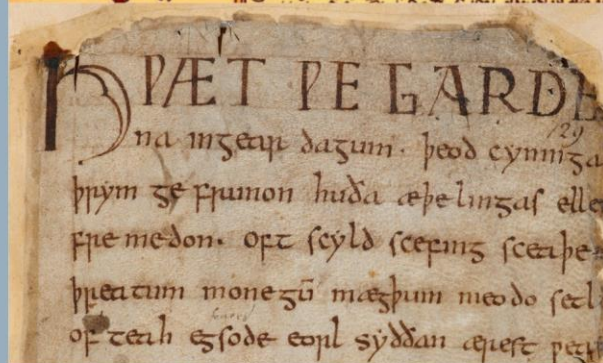 HǷÆT ǷE GARDE
129
na ingear dagum. þeod cyninga
þrym ge frunon huða æþelingas elle
fre medon. oft scyld scefing sceaþe
þreatum monegū mægþum meodo setl
of teah egsode eorl syððan ærest ƿear